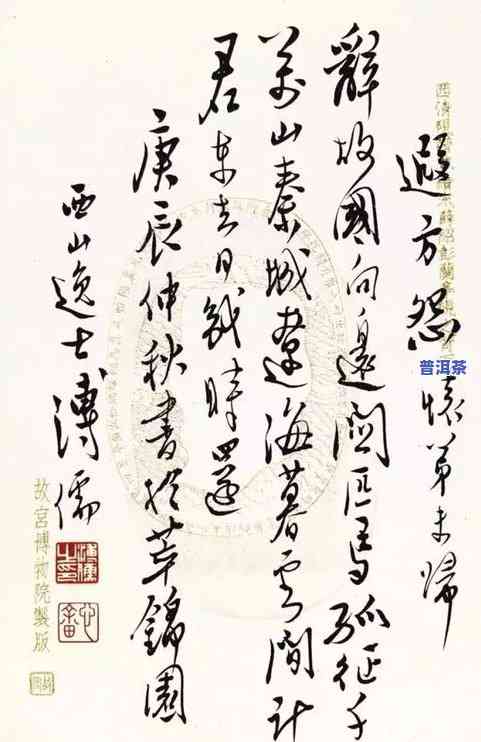 遐方怨 懷弟未歸
辭故國向邊關匹馬孤征千
萬山秦城遼海暮雲間計
君東去日幾時還
庚辰仲秋書於萃錦園
西山逸士溥儒
溥儒之印
心畬
故宮博物院製版
普洱茶